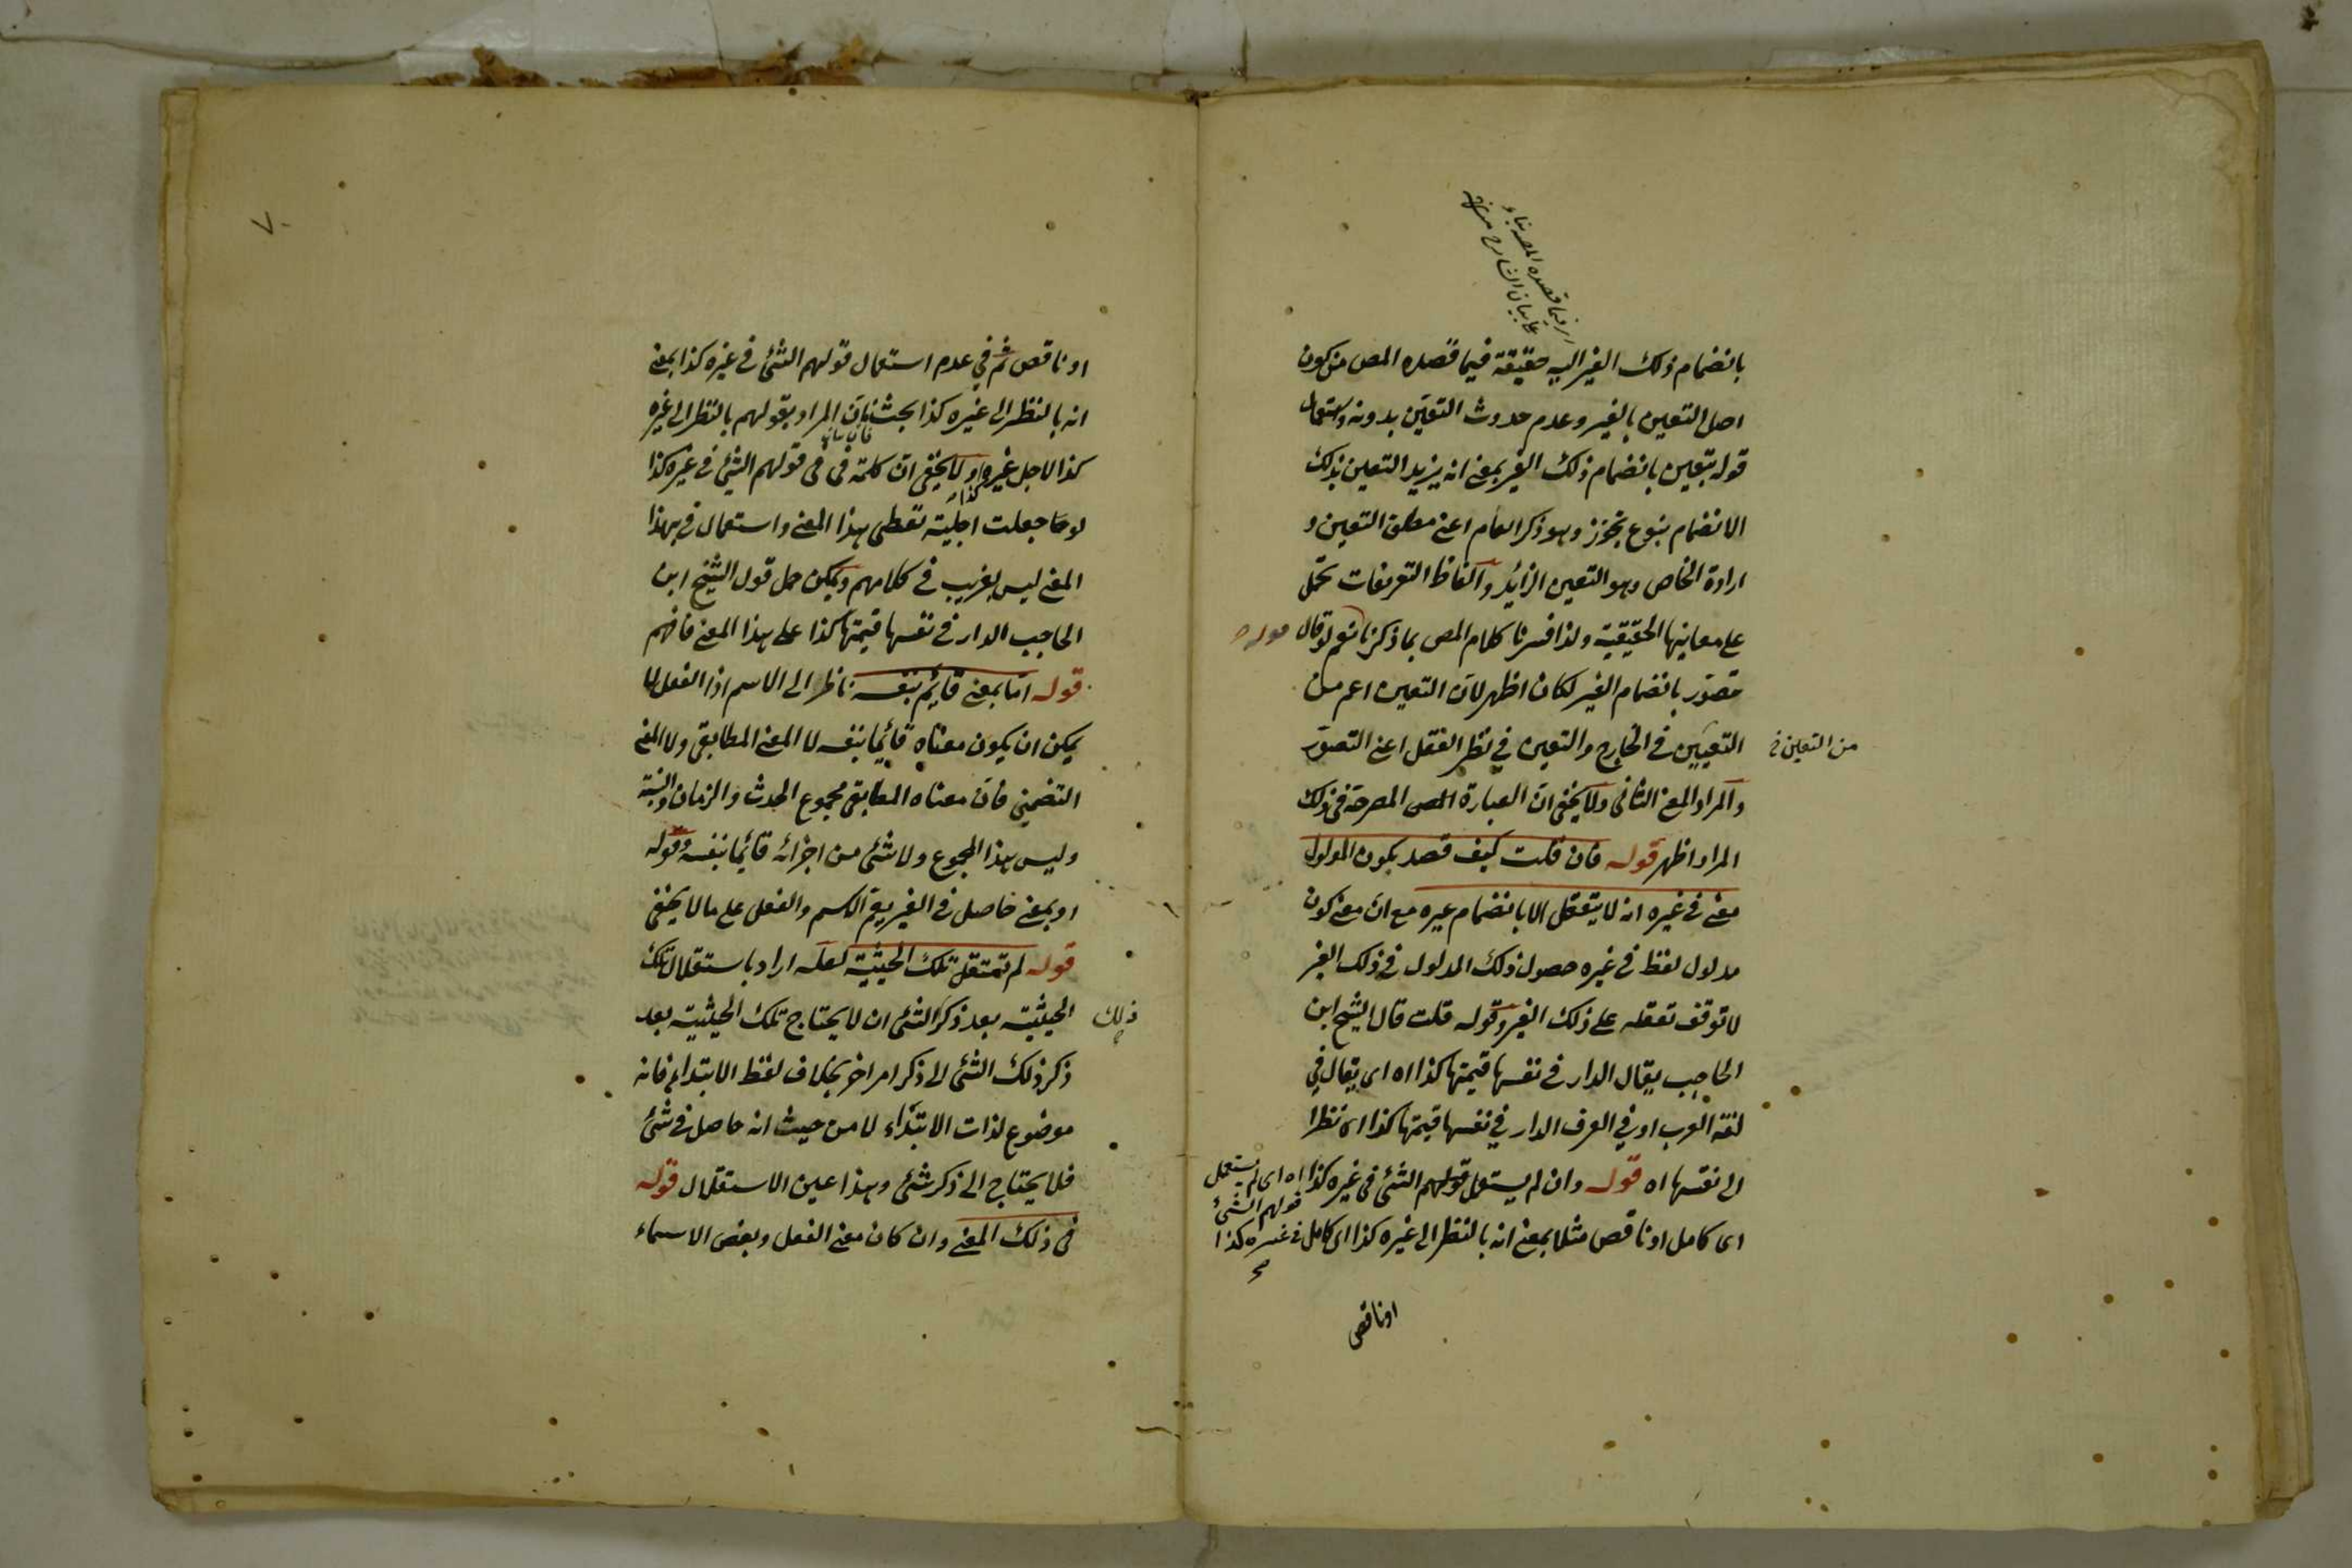 اى فيما قصده المص بناء
على بيان الشارح منه
بانضمام ذلك الغير اليه حقيقة فيما قصده المص من كون
اصل التعين بالغير وعدم حدوث التعين بدونه واستعمال
قوله يتعين بانضمام ذلك الغير بمعنى انه يزيد التعين بذلك
الانضمام بنوع تجوز وهو ذكر العام اعنى مطلق التعين و
ارادة الخاص وهو التعين الزائد والفاظ التعريفات تحمل
على معانيها الحقيقية ولذا فسرنا كلام المص بما ذكرنا نعم لو قال
متصور بانضمام الغير لكان اظهر لان التعين اعم من
التعيين فى الخارج والتعين في نظر العقل اعنى التصور
من التعين فى
والمراد المعنى الثانى ولا يخفى ان العبارة المص المصرحة فى ذلك
المراد اظهر قوله فان قلت كيف قصد بكون المدلول
معنى فى غيره انه لا يتعقل الا بانضمام غيره مع ان معنى كون
مدلول لفظ فى غيره حصول ذلك المدلول فى ذلك الغير
لا توقف تعقله على ذلك الغير وقوله قلت قال الشيخ ابن
الحاجب يقال الدار فى نفسها قيمتها كذا اه اى يقال في
لغة العرب او في العرف الدار في نفسها قيمتها كذا اى نظرا
الى نفسها اه قوله وان لم يستعمل قولهم الشئ فى غيره كذا اه اى لم يستعمل
قولهم الشئ
اى كامل او ناقص مثلا بمعنى انه بالنظر الى غيره كذا اى كامل فى غيره كذا
او ناقص
٧
او ناقص ثم في عدم استعمال قولهم الشئ فى غيره كذا بمعنى
انه بالنظر الى غيره كذا بحث فان المراد بقولهم بالنظر الى غيره
كذا لاجل غيره ولا يخفى ان كلمة فى فى قولهم الشئ فى غيره كذا
لو جعلت اجلية تعطى هذا المعنى واستعمال فى بهذا
المعنى ليس بغريب فى كلامهم ويمكن حمل قول الشيخ ابن
الحاجب الدار فى نفسها قيمتها كذا على هذا المعنى فافهم
قوله اما بمعنى قائم بنفسه ناظر الى الاسم اذ الفعل لا
يمكن ان يكون معناه قائما بنفسه لا المعنى المطابقى ولا المعنى
التضمنى فان معناه المطابقى مجموع الحدث والزمان والنسبة
وليس هذا المجموع ولا شئ من اجزائه قائما بنفسه وقوله
او بمعنى حاصل فى الغير يعم الاسم والفعل على ما لا يخفى
قوله لم تستقل تلك الحيثية لعله اراد باستقلال تلك
الحيثية بعد ذكر الشئ ان لا يحتاج تلك الحيثية بعد
ذلك
ذكر ذلك الشئ الى ذكر امر اخر بخلاف لفظ الابتداء فانه
موضوع لذات الابتداء لا من حيث انه حاصل فى شئ
فلا يحتاج الى ذكر شئ وهذا عين الاستقلال قوله
فى ذلك المعنى وان كان معنى الفعل وبعض الاسماء